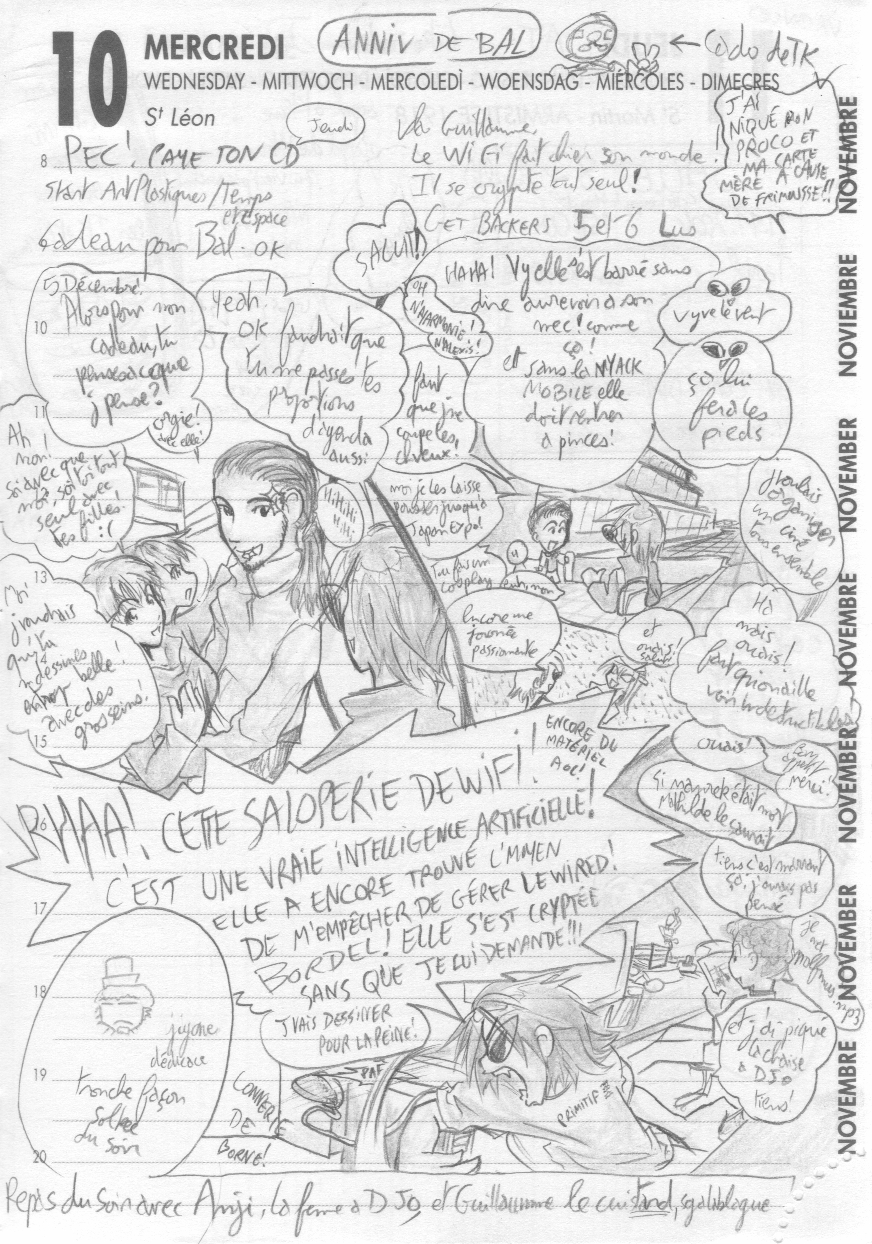 10
MERCREDI
ANNIV DE BAL
WEDNESDAY - MITTWOCH - MERCOLEDÌ - WOENSDAG - MIÉRCOLES - DIMECRES
St Léon
Jeudi
8
PEC! PAYE TON CD
Start Art Plastiques/Temps
et Espace
Cadeau pour Bal. OK
Guillaume,
Le WiFi fait chier son monde.
Il se crypte tout seul!
GET BACKERS 5 et 6 Lus
J'AI
NIQUÉ MON
PROCO ET
MA CARTE
MÈRE À CAUSE
DE FRIMOUSSE!!
SALUT!
5 Décembre!
Alors pour mon
cadeau, tu
penses à ce que
j'pense?
Yeah!
OK faudrait que
tu me passes tes
proportions
d'agenda
aussi
orgie!
avec elle!
HAHA! Vy elle s'est barré sans
dire aurevoir à son
mec! comme
ça!
et sans la NYACK
MOBILE elle
doit rentrer
à pinces!
Vyvre le vent
ça lui
fera les
pieds
faut
que j'me
coupe les
cheveux!
moi je les laisse
pousser jusqu'à
Japan Expo!
Hi Hi Hi
Hi Hi
10
11
13
15
16
17
18
19
20
Ah!
non!
Soi avec que
moi, soit toi tout
seul avec
tes filles!
:(
Moi
j'voudrais
qu'tu
m'dessines
encor belle!
avec des
gros seins.
Tu fais un
cosplay
Encore une
journée
passionnante
et
ouais!
J'voulais
organiser
un ciné
tous ensemble
Ha
mais
ouais!
faut qu'on aille
voir Indestructibles
ouais!
Bon
appétit
merci!
YAAA! CETTE SALOPERIE DE WIFI!!
ENCORE DU
MATÉRIEL
AOL!
C'EST UNE VRAIE INTELLIGENCE ARTIFICIELLE!
ELLE A ENCORE TROUVÉ L'MOYEN
DE M'EMPÊCHER DE GÉRER LE WIRED!
BORDEL! ELLE S'EST CRYPTÉE
SANS QUE JE LUI DEMANDE!!!
tiens c'est marrant
ça, j'aurais pas
pensé
et j'ai piqué
la chaise
à DJo
tiens!
J'VAIS DESSINER
POUR LA PEINE!
PAF
CONNERIE
DE
BORNE!
PRIMITIF
dédicace
tronche façon
du soir
Repas du Soir avec Anji, la femme à DJo, et Guillaume le cuistand, sgalablague
NOVEMBRE
NOVIEMBRE
NOVEMBER
NOVEMBRE
NOVEMBRE
NOVEMBER
NOVEMBRE